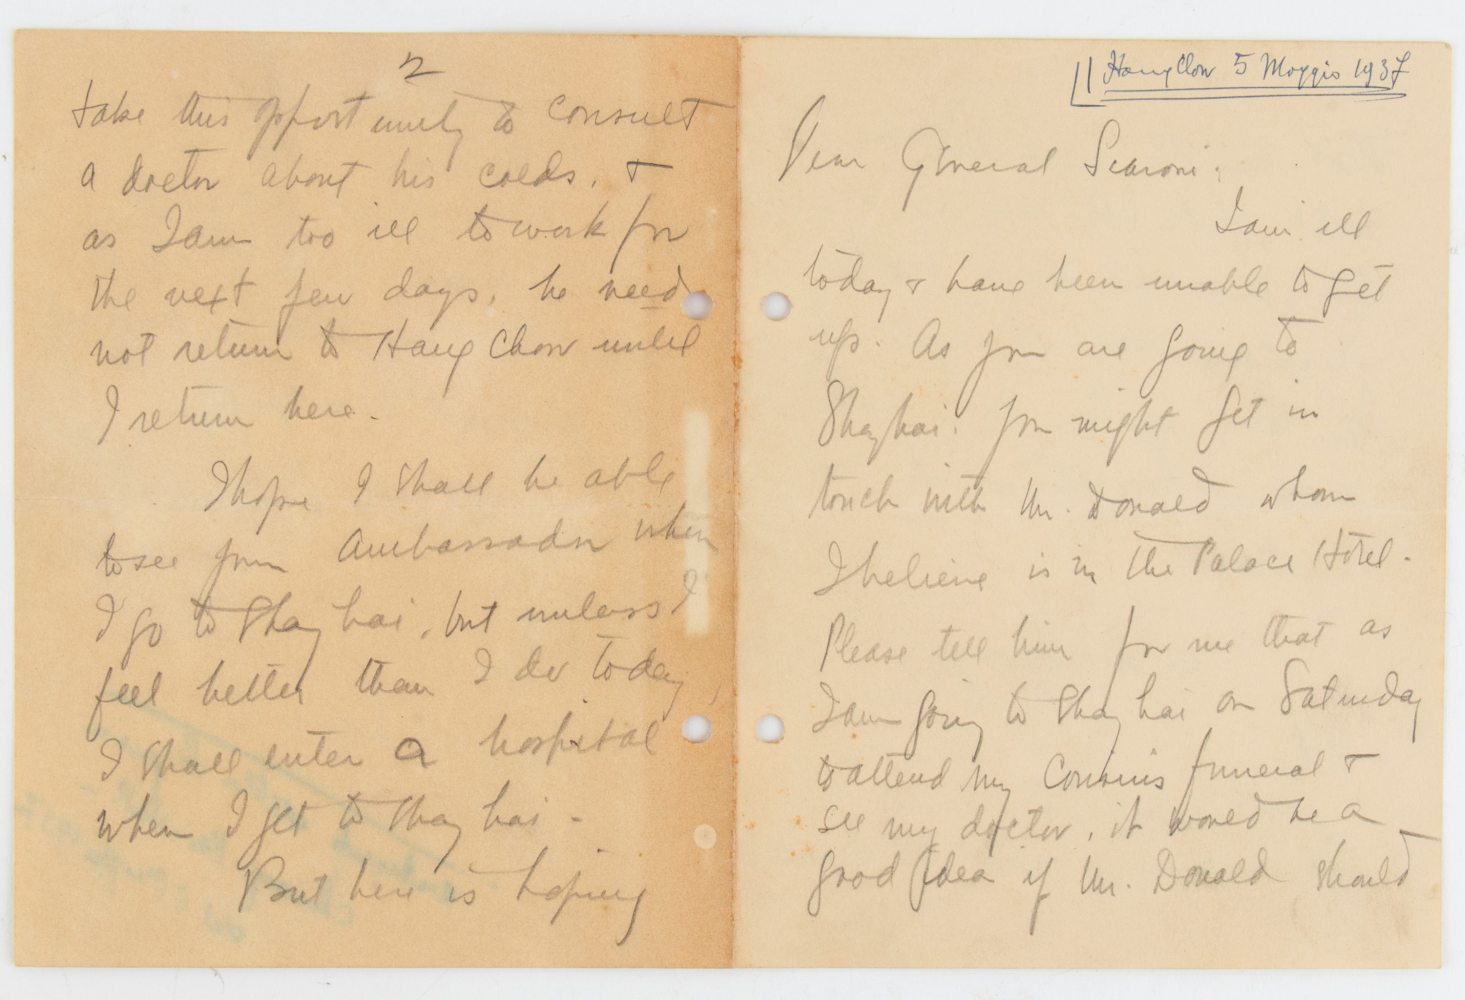 HangChow 5 Maggio 1937
Dear General Scaroni:
I am ill
today & have been unable to get
up. As you are going to
Shaghai. you might get in
touch with Mr. Donald whom
I believe is in the Palace Hotel.
Please tell him for me that as
I am going to Shaghai on Saturday
to attend my cousin's funeral &
see my doctor, it would be a
good idea if Mr. Donald should
2
take this opportunity to consult
a doctor about his colds. &
as I am too ill to work for
the next few days, he need
not return to HangChow until
I return here.
I hope I shall be able
to see your Ambassador when
I go to Shaghai, but unless I
feel better than I do today,
I shall enter a hospital
when I get to Shaghai -
But here is hoping